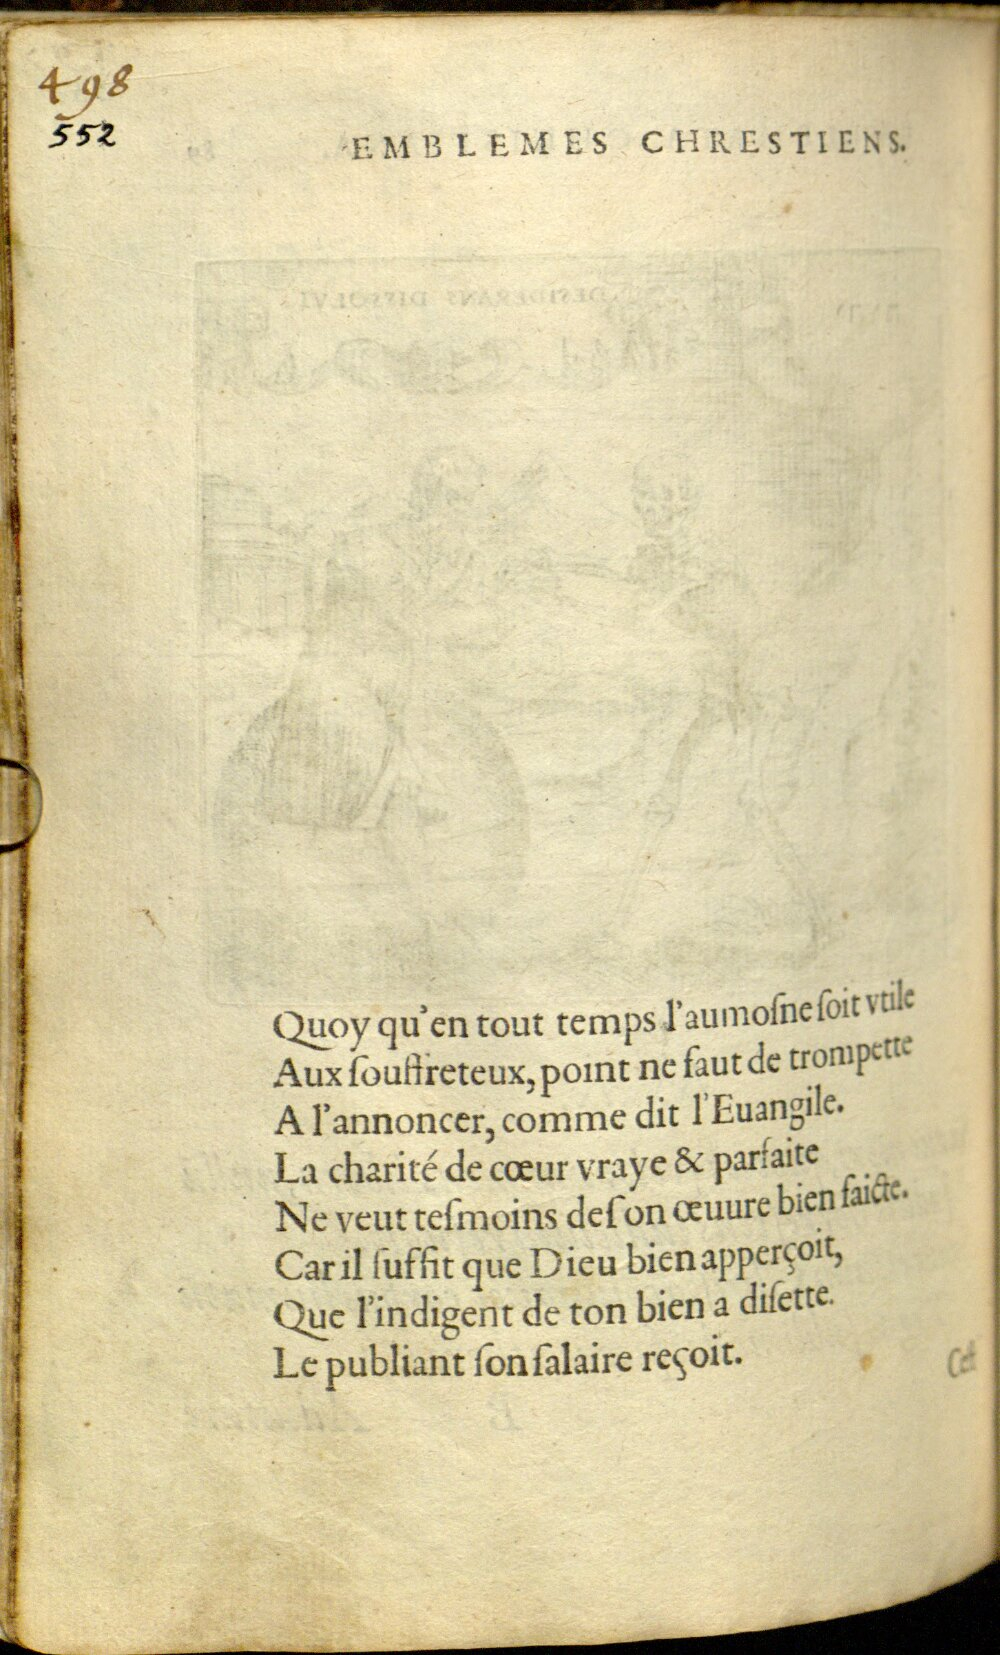 498
552
EMBLEMES CHRESTIENS.
DESIDERANS DISSOLVI
Quoy qu'en tout temps l'aumoſne ſoit vtile
Aux ſouffreteux, point ne faut de trompette
A l'annoncer, comme dit l'Euangile.
La charité de cœur vraye & parfaite
Ne veut teſmoins de ſon œuure bien faicte.
Car il ſuffit que Dieu bien apperçoit,
Que l'indigent de ton bien a diſette.
Le publiant ſon ſalaire reçoit.